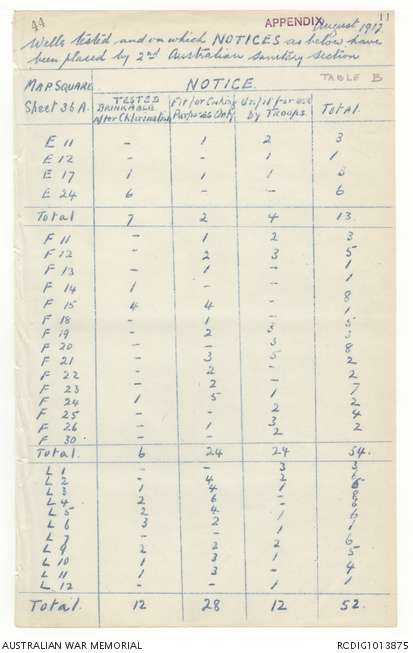 44
APPENDIX
11
August 1917
Wells tested and on which NOTICES as below have
been placed by 2nd Australian sanitary section
TABLE B
MAP SQUARE Sheet 36 A. NOTICE.
TESTED DRINKABLE after Chlorination | Fit for Cooking Purposes Only | Unfit for use by Troops. | Total.
E 11 - 1 2 3
E 12 - - 1 1
E 17 1 1 1 3
E 24 6 - - 6
Total 7 2 4 13.
F 11 - 1 2 3
F 12 - 2 3 5
F 13 - 1 - 1
F 14 1 - - 1
F 15 4 4 - 8
F 18 - 1 - 1
F 19 - 2 3 5
F 20 - - 3 3
F 21 - 3 5 8
F 22 - 2 - 2
F 23 - 2 - 2
F 24 1 5 1 7
F 25 - - 2 2
F 26 - 1 3 4
F 30 - - 2 2
Total. 6 24 24 54.
L 1 - - 3 3
L 2 - 4 2 6
L 3 1 4 1 6
L 4 2 6 - 8
L 5 2 4 - 6
L 6 3 2 1 6
L 7 - - 1 1
L 9 2 2 2 6
L 10 1 3 1 5
L 11 1 3 - 4
L 12 - - 1 1
Total. 12 28 12 52.
AUSTRALIAN WAR MEMORIAL
RCDIG1013875